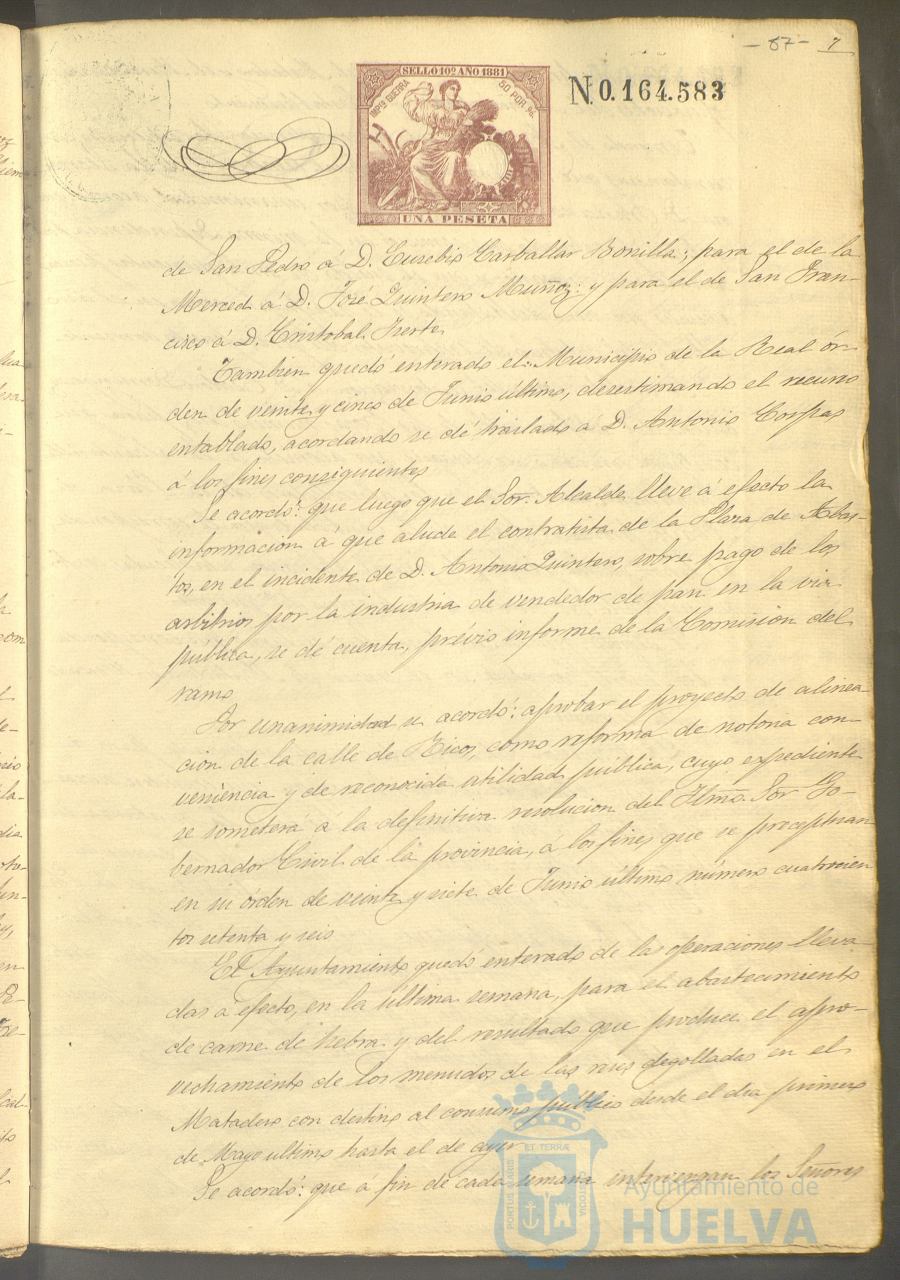 - 87 - 7
SELLO 10º AÑO 1881
IMPTO GUERRA
50 POR %
UNA PESETA
N.0.164.583
de San Pedro á D. Eusebio Carballar Bonilla; para el de la
Merced á D. José Quintero Muñoz: y para el de San Fran-
cisco á D. Cristobal
Tambien quedó enterado el Municipio de la Real ór-
den de veinte y cinco de Junio último, desestimando el recurso
entablado, acordando se dé traslado á D. Antonio Corpas
á los fines consiguientes
Se acordó: que luego que el Sor. Alcalde lleve á efecto la
informacion á que alude el contratista de la Plaza de Abas-
tos, en el incidente de D. Antonio Quintero, sobre pago de los
arbitrios por la industria de vendedor de pan en la via
pública, se dé cuenta, prévio informe de la Comision del
ramo
Por unanimidad se acordó: aprobar el proyecto de alinea-
cion de la calle de Ricos, como reforma de notoria con-
veniencia y de reconocida utilidad pública, cuyo expediente
se someterá á la definitiva resolucion del Iltmo. Sor Go-
bernador Civil de la provincia, á los fines que se preceptuan
en su órden de veinte y siete de Junio último número cuatrocien
tos setenta y seis
El Ayuntamiento quedó enterado de las operaciones lleva-
das a efecto, en la última semana, para el abastecimiento
de carne de hebra y del resultado que produce el apro-
vechamiento de los menudos de las reses degolladas en el
Matadero con destino al consumo público desde el dia primero
de Mayo ultimo hasta el de ayer
Se acordó: que a fin de cada semana intervengan los Señores
PORTUS MARIS ET TERRÆ CUSTODIA
Ayuntamiento de
HUELVA